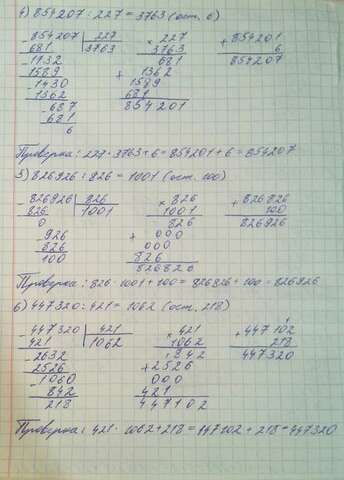 4) 854207 : 227 = 3763 (ост. 6)
854207 | 227
681 3763
1732
1589
1430
1362
687
681
6
× 227
3763
681
+ 1362
1589
681
854201
+ 854201
6
854207
Проверка: 227 · 3763 + 6 = 854201 + 6 = 854207
5) 826926 : 826 = 1001 (ост. 100)
- 826926 | 826
826 1001
0
- 926
826
100
× 826
1001
826
+ 000
000
826
826826
+ 826826
100
826926
Проверка: 826 · 1001 + 100 = 826826 + 100 = 826926
6) 447320 : 421 = 1062 (ост. 218)
- 447320 | 421
421 1062
- 2632
2526
- 1060
842
218
× 421
1062
842
+ 2526
000
421
447102
+ 447102
218
447320
Проверка: 421 · 1062 + 218 = 447102 + 218 = 447320